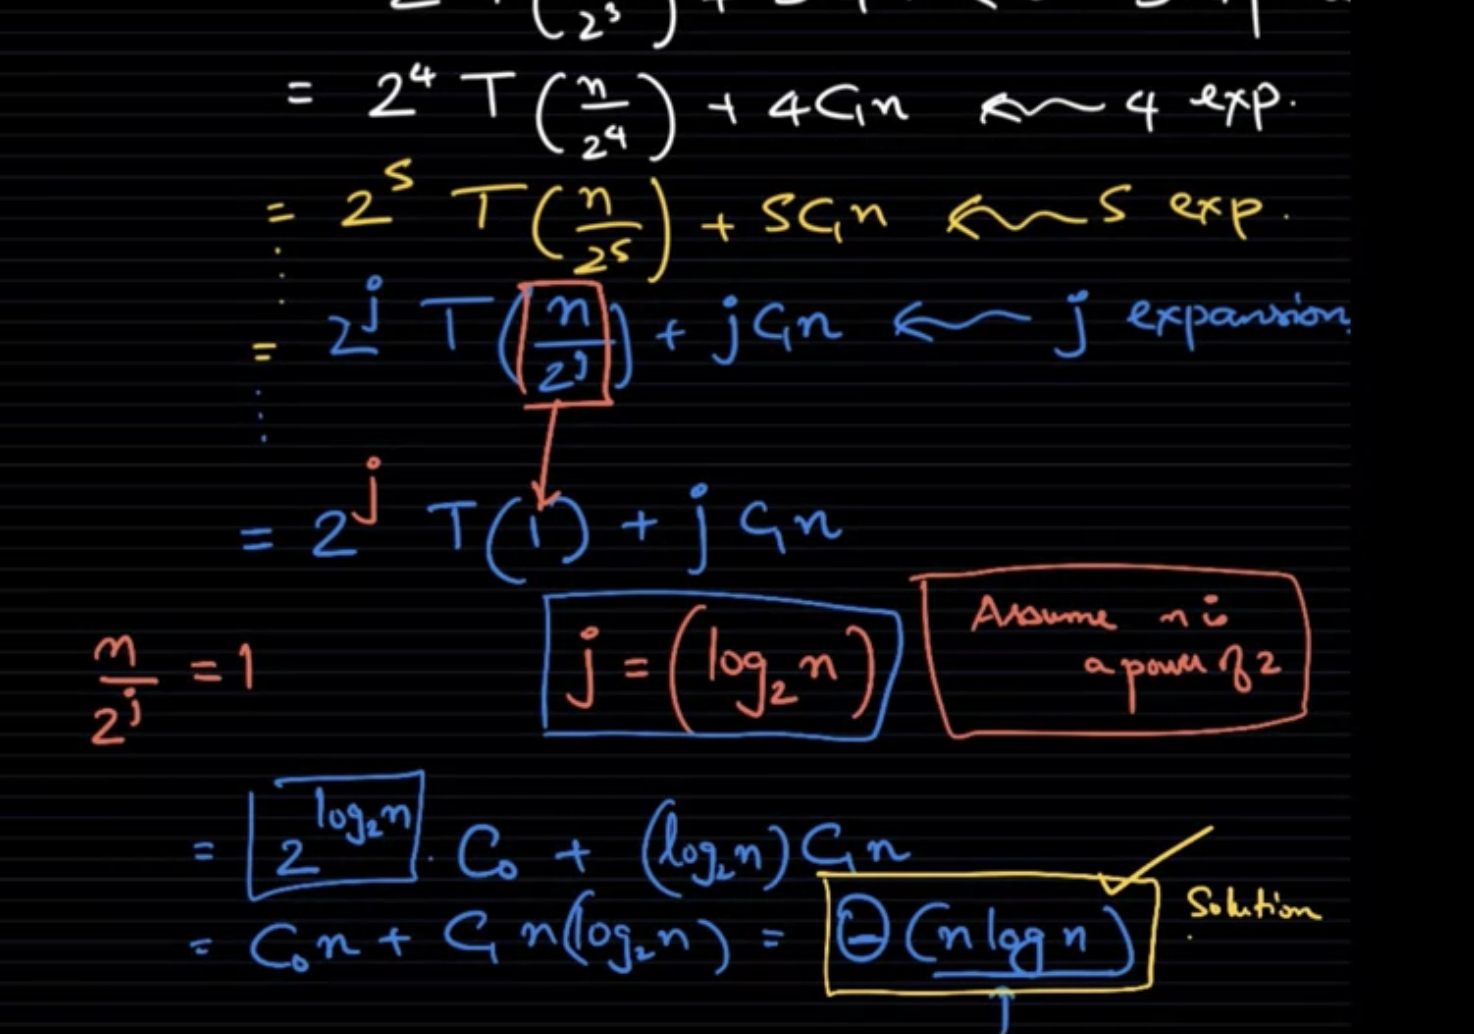 (2³)
= 2⁴ T(n/2⁴) + 4C₁n ← 4 exp.
= 2⁵ T(n/2⁵) + 5C₁n ← 5 exp.
= 2ʲ T(n/2ʲ) + jC₁n ← j expansion
= 2ʲ T(1) + jC₁n
n/2ʲ = 1 j = (log₂n) Assume n is
a power of 2
= 2^(log₂n) . C₀ + (log₂n) C₁n
= C₀n + C₁ n(log₂n) = Θ(n log n) Solution